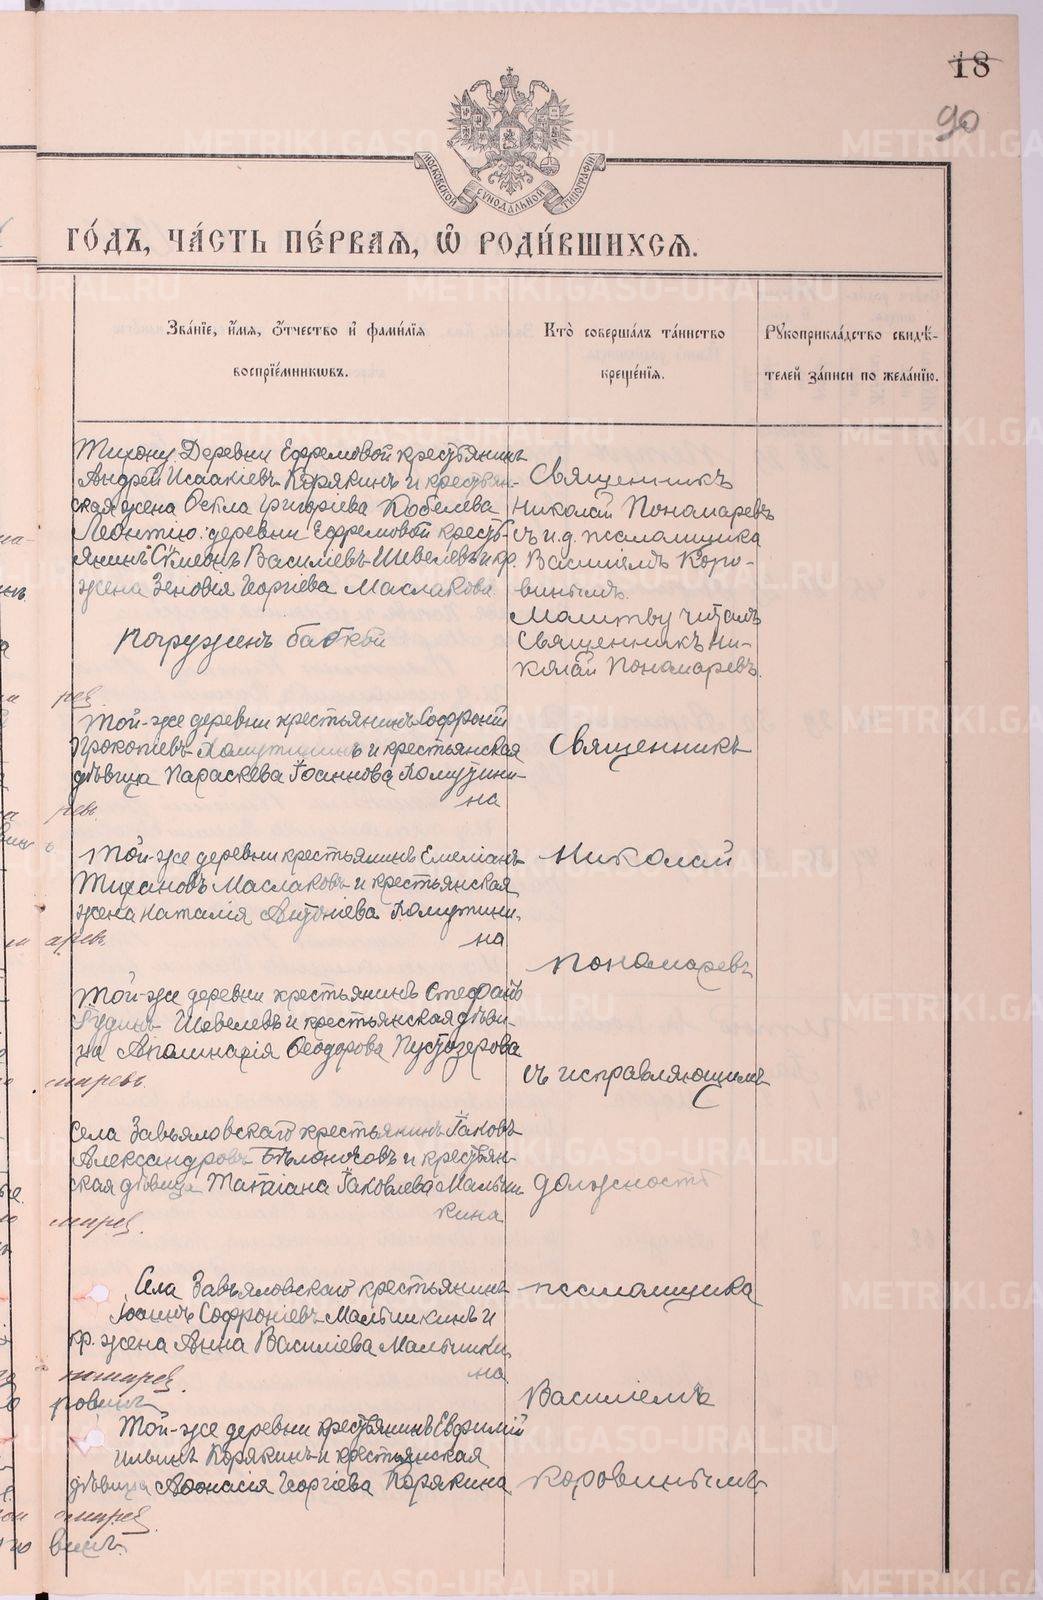 18
90
МОСКОВСКОЙ СѴНОДАЛЬНОЙ ТИПОГРАФІИ
ГО́ДЪ, ЧА́СТЬ ПЕ́РВАЯ, Ѽ РОДИ́ВШИХСЯ.
Зва́нїе, и́мя, ѻ҆́тчество и҆ фами́лїя
воспрїе́мниковъ.
Кто̀ соверша́лъ та́инство
креще́нїя.
Рꙋкоприкла́дство свидѣ́-
телей за́писи по жела́нїю.
Тихону Деревни Ефремовой крестьянинъ
Андрей Исаакіевъ Корякинъ и крестьян-
ская жена Фекла Григоріева Кобелева
Леонтію: деревни Ефремовой кресть-
янинъ Сѵмеонъ Василіевъ Шевелевъ и кр.
жена Зеновія Георгіева Маслакова
погруженъ бабкой
Священникъ
Николай Пономаревъ
съ и.д. псаломщика
Василіемъ Коро-
винымъ.
Молитву читалъ
Священникъ Ни-
колай Пономаревъ.
Той-же деревни крестьянинъ Софроній
Прокопіевъ Ломутининъ и крестьянская
дѣвица Параскева Іоаннова Ломутини-
на
Священникъ
Той-же деревни крестьянинъ Емеліанъ
Тихановъ Маслаковъ и крестьянская
жена Наталія Антоніева Ломутини-
на
Николай
Пономаревъ
Той-же деревни крестьянинъ Стефанъ
Шевелевъ и крестьянская дѣви-
ца Аполинарія Ѳеодорова Пустозерова
съ исправляющимъ
Села Завьяловскаго крестьянинъ Іаковъ
Александровъ Бѣлоносовъ и крестьян-
ская дѣвица Татіана Іаковлева Малыш-
кина
должность
Села Завьяловскаго крестьянинъ
Іоаннъ Софроніевъ Малышкинъ и
кр. жена Анна Василіева Малышки
на
псаломщика
Василіемъ
Той-же деревни крестьянинъ Евфимій
Ильинъ Корякинъ и крестьянская
дѣвица Афонасія Георгіева Корякина
Коровинымъ
METRIKI.GASO-URAL.RU